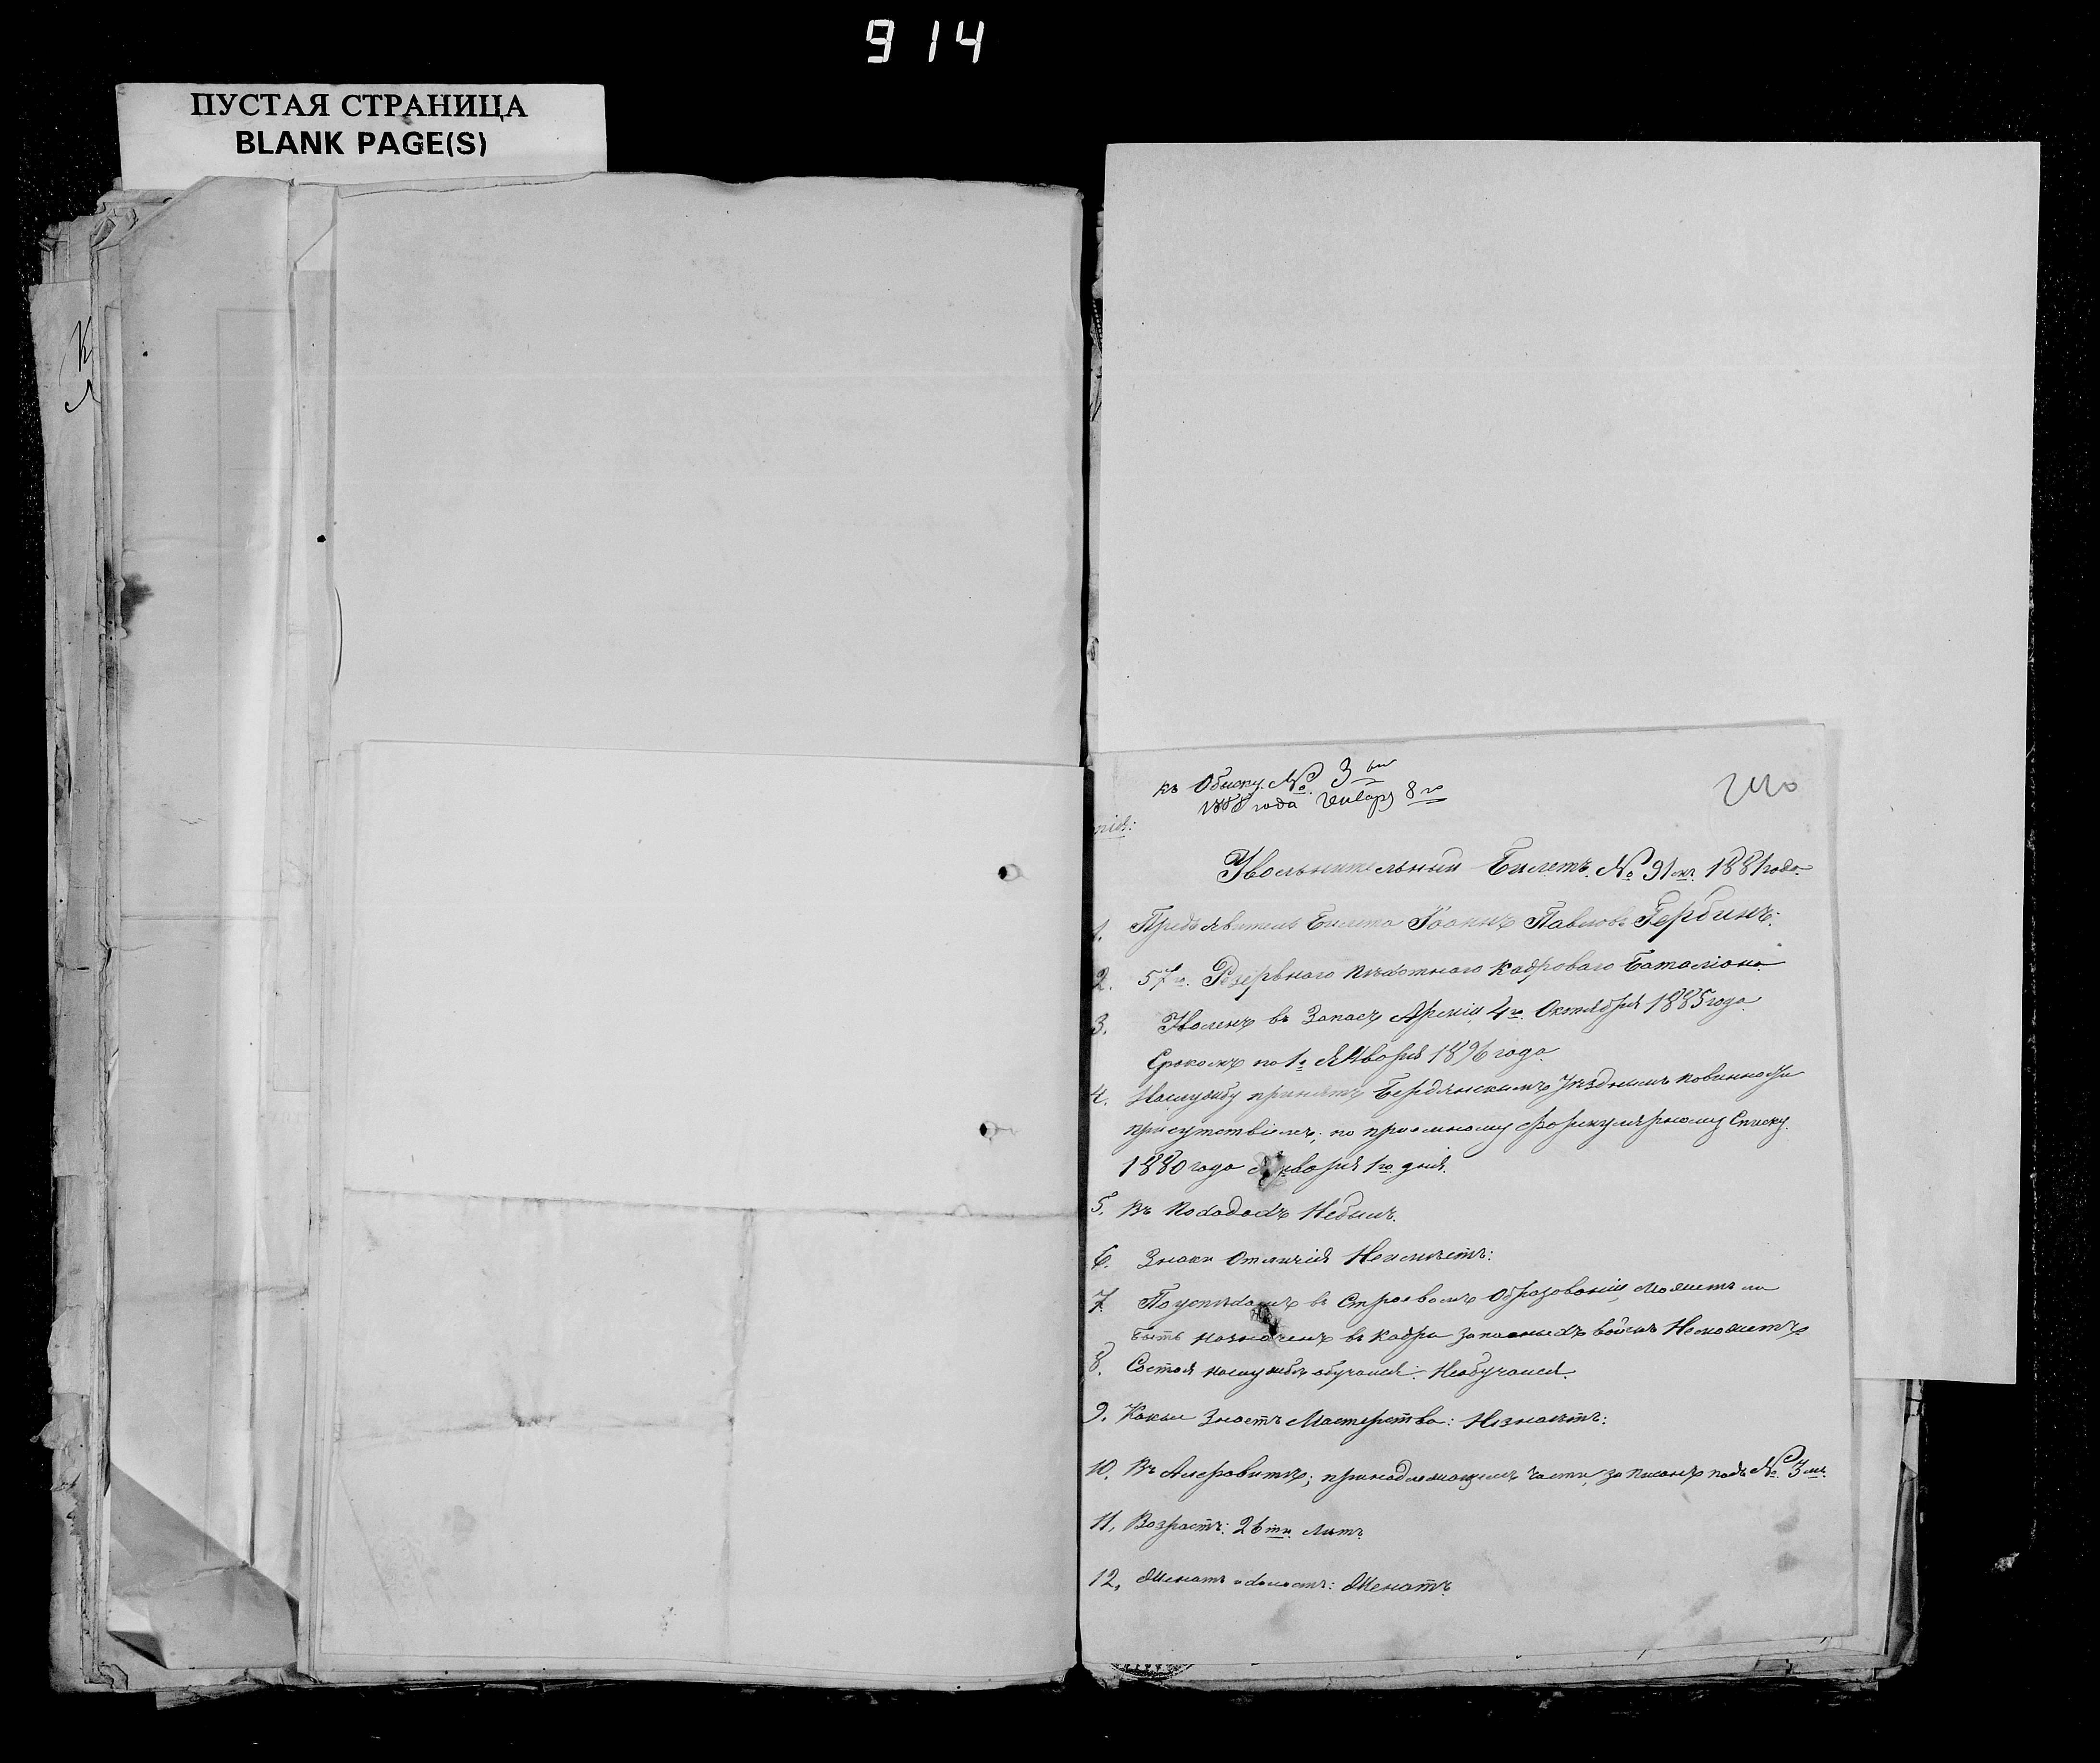 914
ПУСТАЯ СТРАНИЦА
BLANK PAGE(S)
къ Обыску № 3му
1888 года Генваря 8го
нія:
Увольнительный Билетъ. № 91й 1881 года.
1. Предъявитель Билета Іоанъ Павловъ Гербинъ:
2. 57го Резервнаго пехотнаго Кадроваго Баталіона
3. Уволенъ въ Запасъ Арміи 4го Октября 1885 года
Срокомъ по 1е Января 1896 года.
4. Наслужбу принятъ Бердянскимъ Уѣзднымъ повинности
присутствіемъ; по пріомному Формулярному Списку
1880 года Января 1го дня.
5. Въ Походахъ Небылъ.
6. Знаки Отличія Неимѣетъ:
7. По успѣхамъ въ Строевомъ Образованіи, Можетъ ли
быть назначенъ въ кадры запасныхъ войскъ Неможетъ
8. Состоя наслужбѣ обучался: Необучался.
9. Какие Знаетъ Мастерства: Незнаетъ:
10. Въ Алфавитѣ; принадлежащемъ части, записанъ подъ № 3мъ
11. Возрастъ: 26ти Летъ
12. Женатъ холостъ: Женатъ